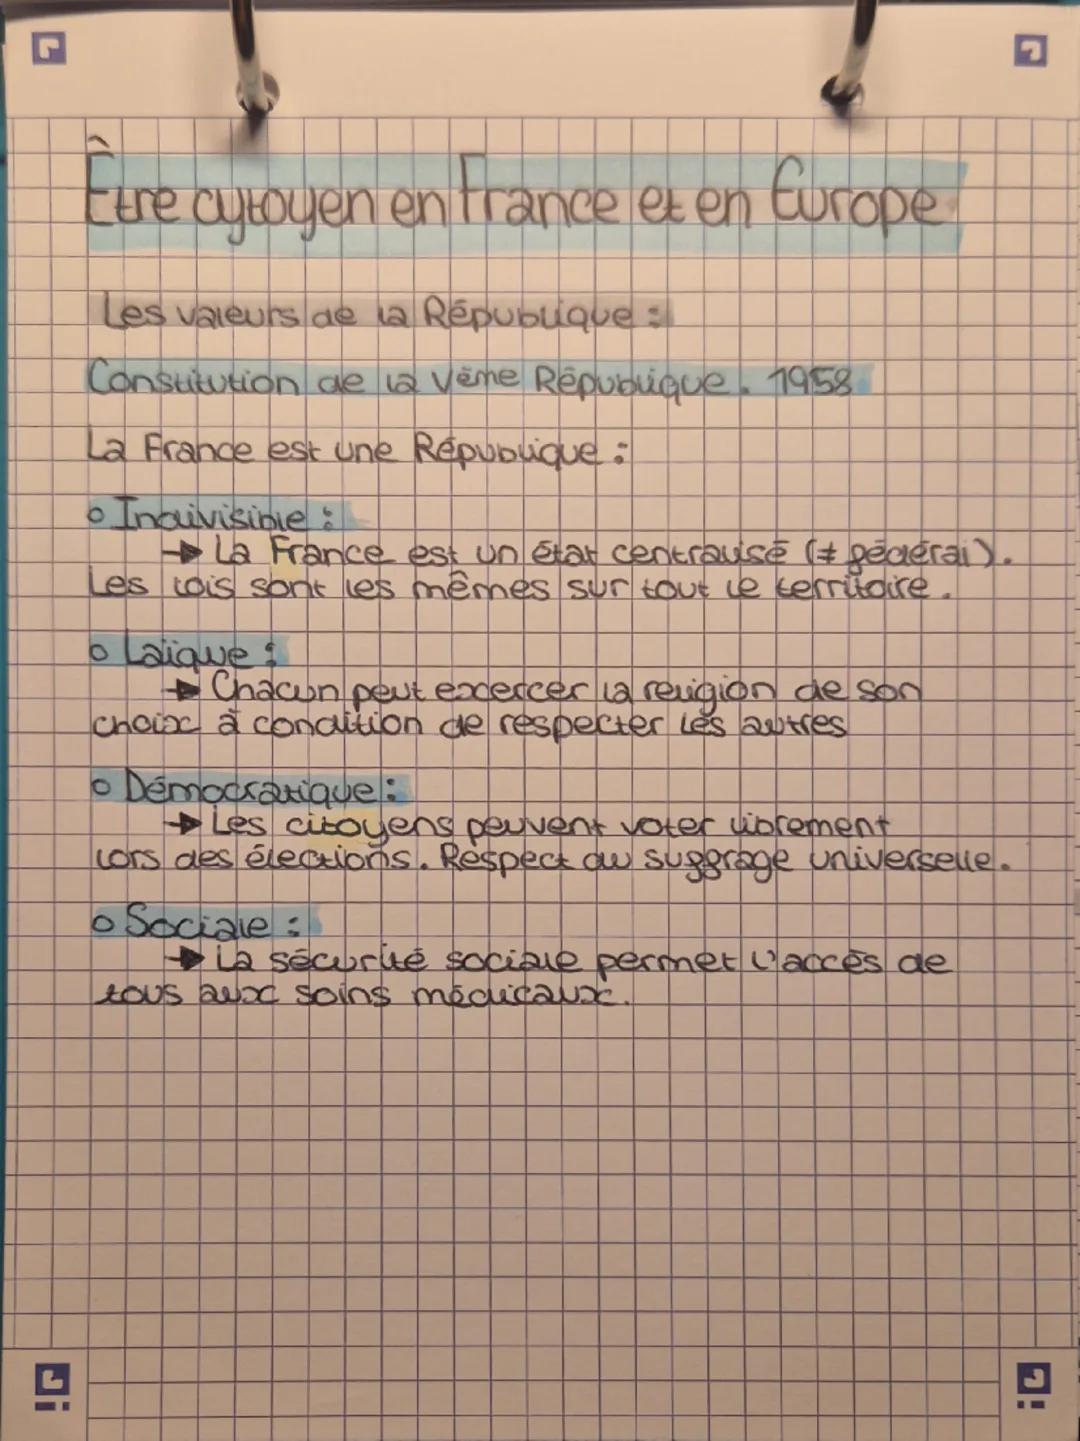 Être cytoyen en France et en Europe
Les valeurs de la République :
Constitution de la Vème République. 1958
La France est une République :
o Indivisible :
→ La France est un état centralisé (≠ fédéral).
Les lois sont les mêmes sur tout le territoire.
o Laïque :
→ Chacun peut excercer la religion de son
choix à condition de respecter les autres
o Démocratique :
→ Les citoyens peuvent voter librement
lors des élections. Respect du suffrage universelle.
o Sociale :
→ La sécurité sociale permet l'accès de
tous aux soins médicaux.